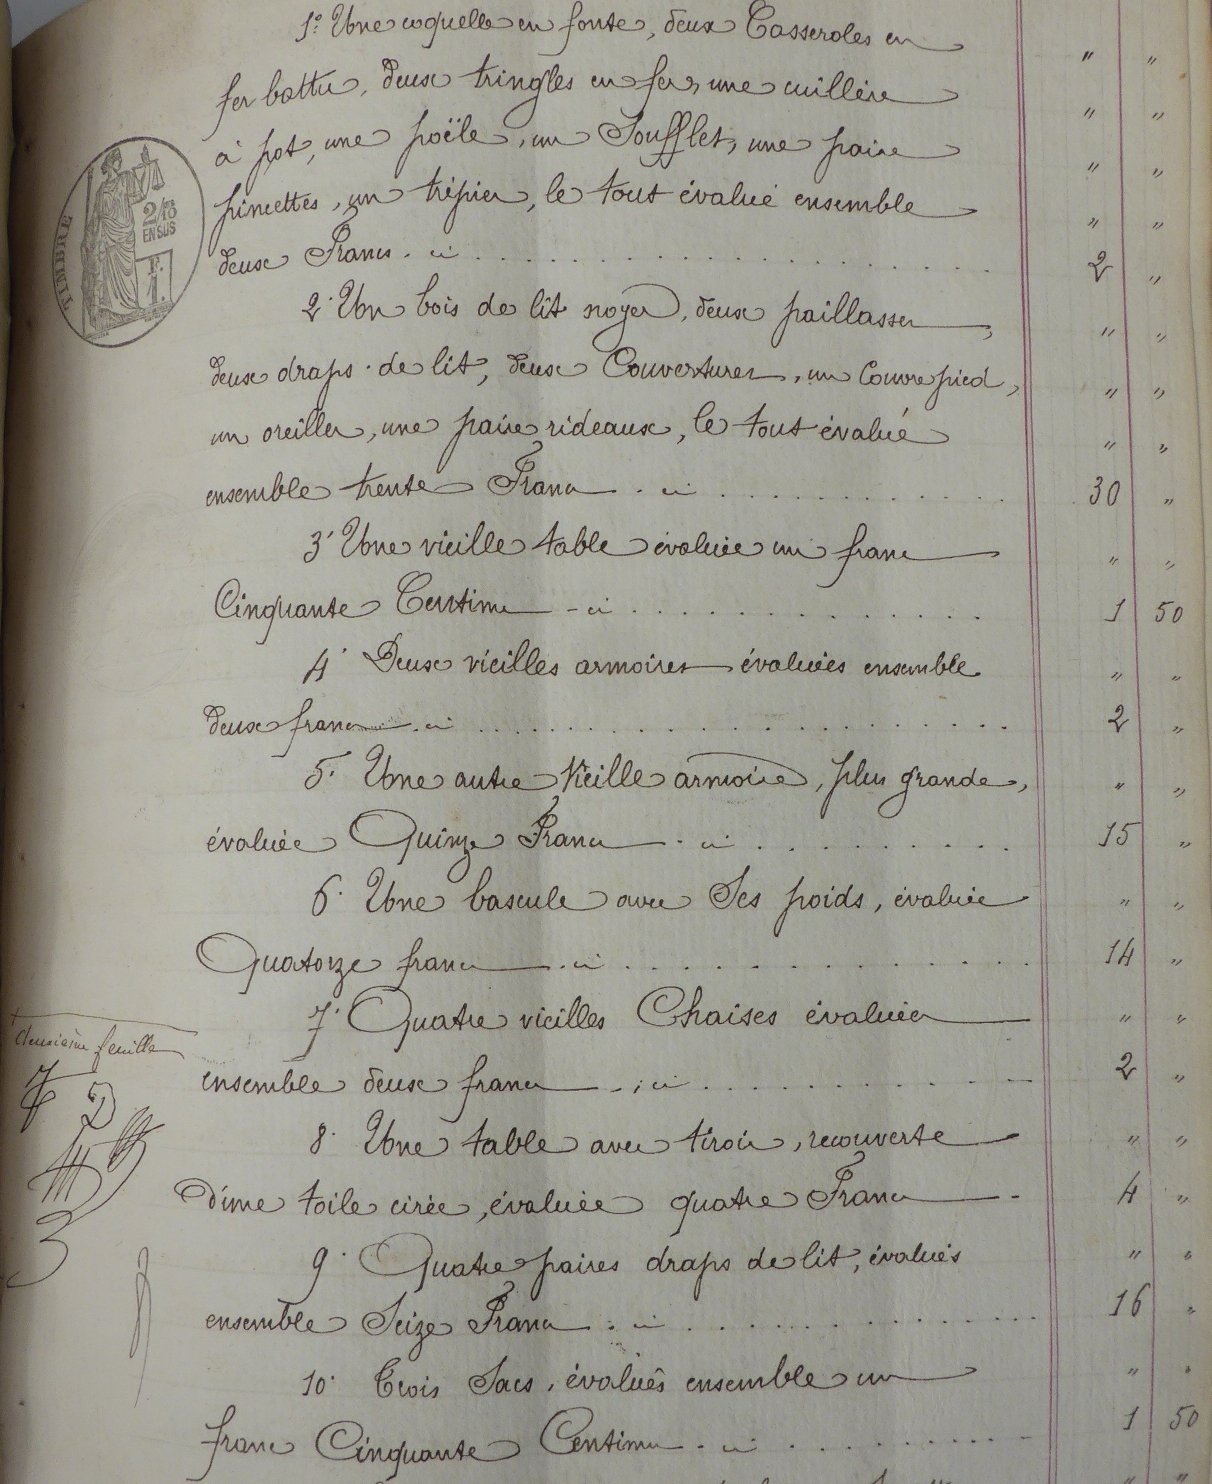 1° Une coquelle en fonte, deux Casseroles en " "
fer battu, deux tringles en fer, une cuillère " "
à pot, une poële, un Soufflet, une paire " "
pincettes, un trépier, le tout évalué ensemble " "
deux Francs. ci . . . . . . . . . . . 2 "
TIMBRE
2/10
EN SUS
F.
1.
2° Un bois de lit noyer, deux paillasses, " "
deux draps de lit, deux Couvertures, un Couvre pied, " "
un oreiller, une paire rideaux, le tout évalué " "
ensemble trente Francs. ci . . . . . . . . . . . 30 "
3° Une vieille table évaluée un franc " "
Cinquante Centimes - ci . . . . . . . . . . . 1 50
4° Deux vieilles armoires évaluées ensemble " "
deux francs. ci . . . . . . . . . . . 2 "
5° Une autre Vieille armoire, plus grande, " "
évaluée Quinze Francs. ci . . . . . . . . . . . 15 "
6° Une bascule avec Ses poids, évaluée " "
Quatorze francs. ci . . . . . . . . . . . 14 "
7° Quatre vieilles Chaises évaluées " "
deuxième feuille
ensemble deux francs. ci . . . . . . . . . . . 2 "
8° Une table avec tiroir, recouverte " "
d'une toile cirée, évaluée quatre Francs - 4 "
9° Quatre paires draps de lit, évalués " "
ensemble Seize Francs. ci . . . . . . . . . . . 16 "
10° Trois Sacs, évalués ensemble un " "
franc Cinquante Centimes. ci . . . . . . . . . . . 1 50